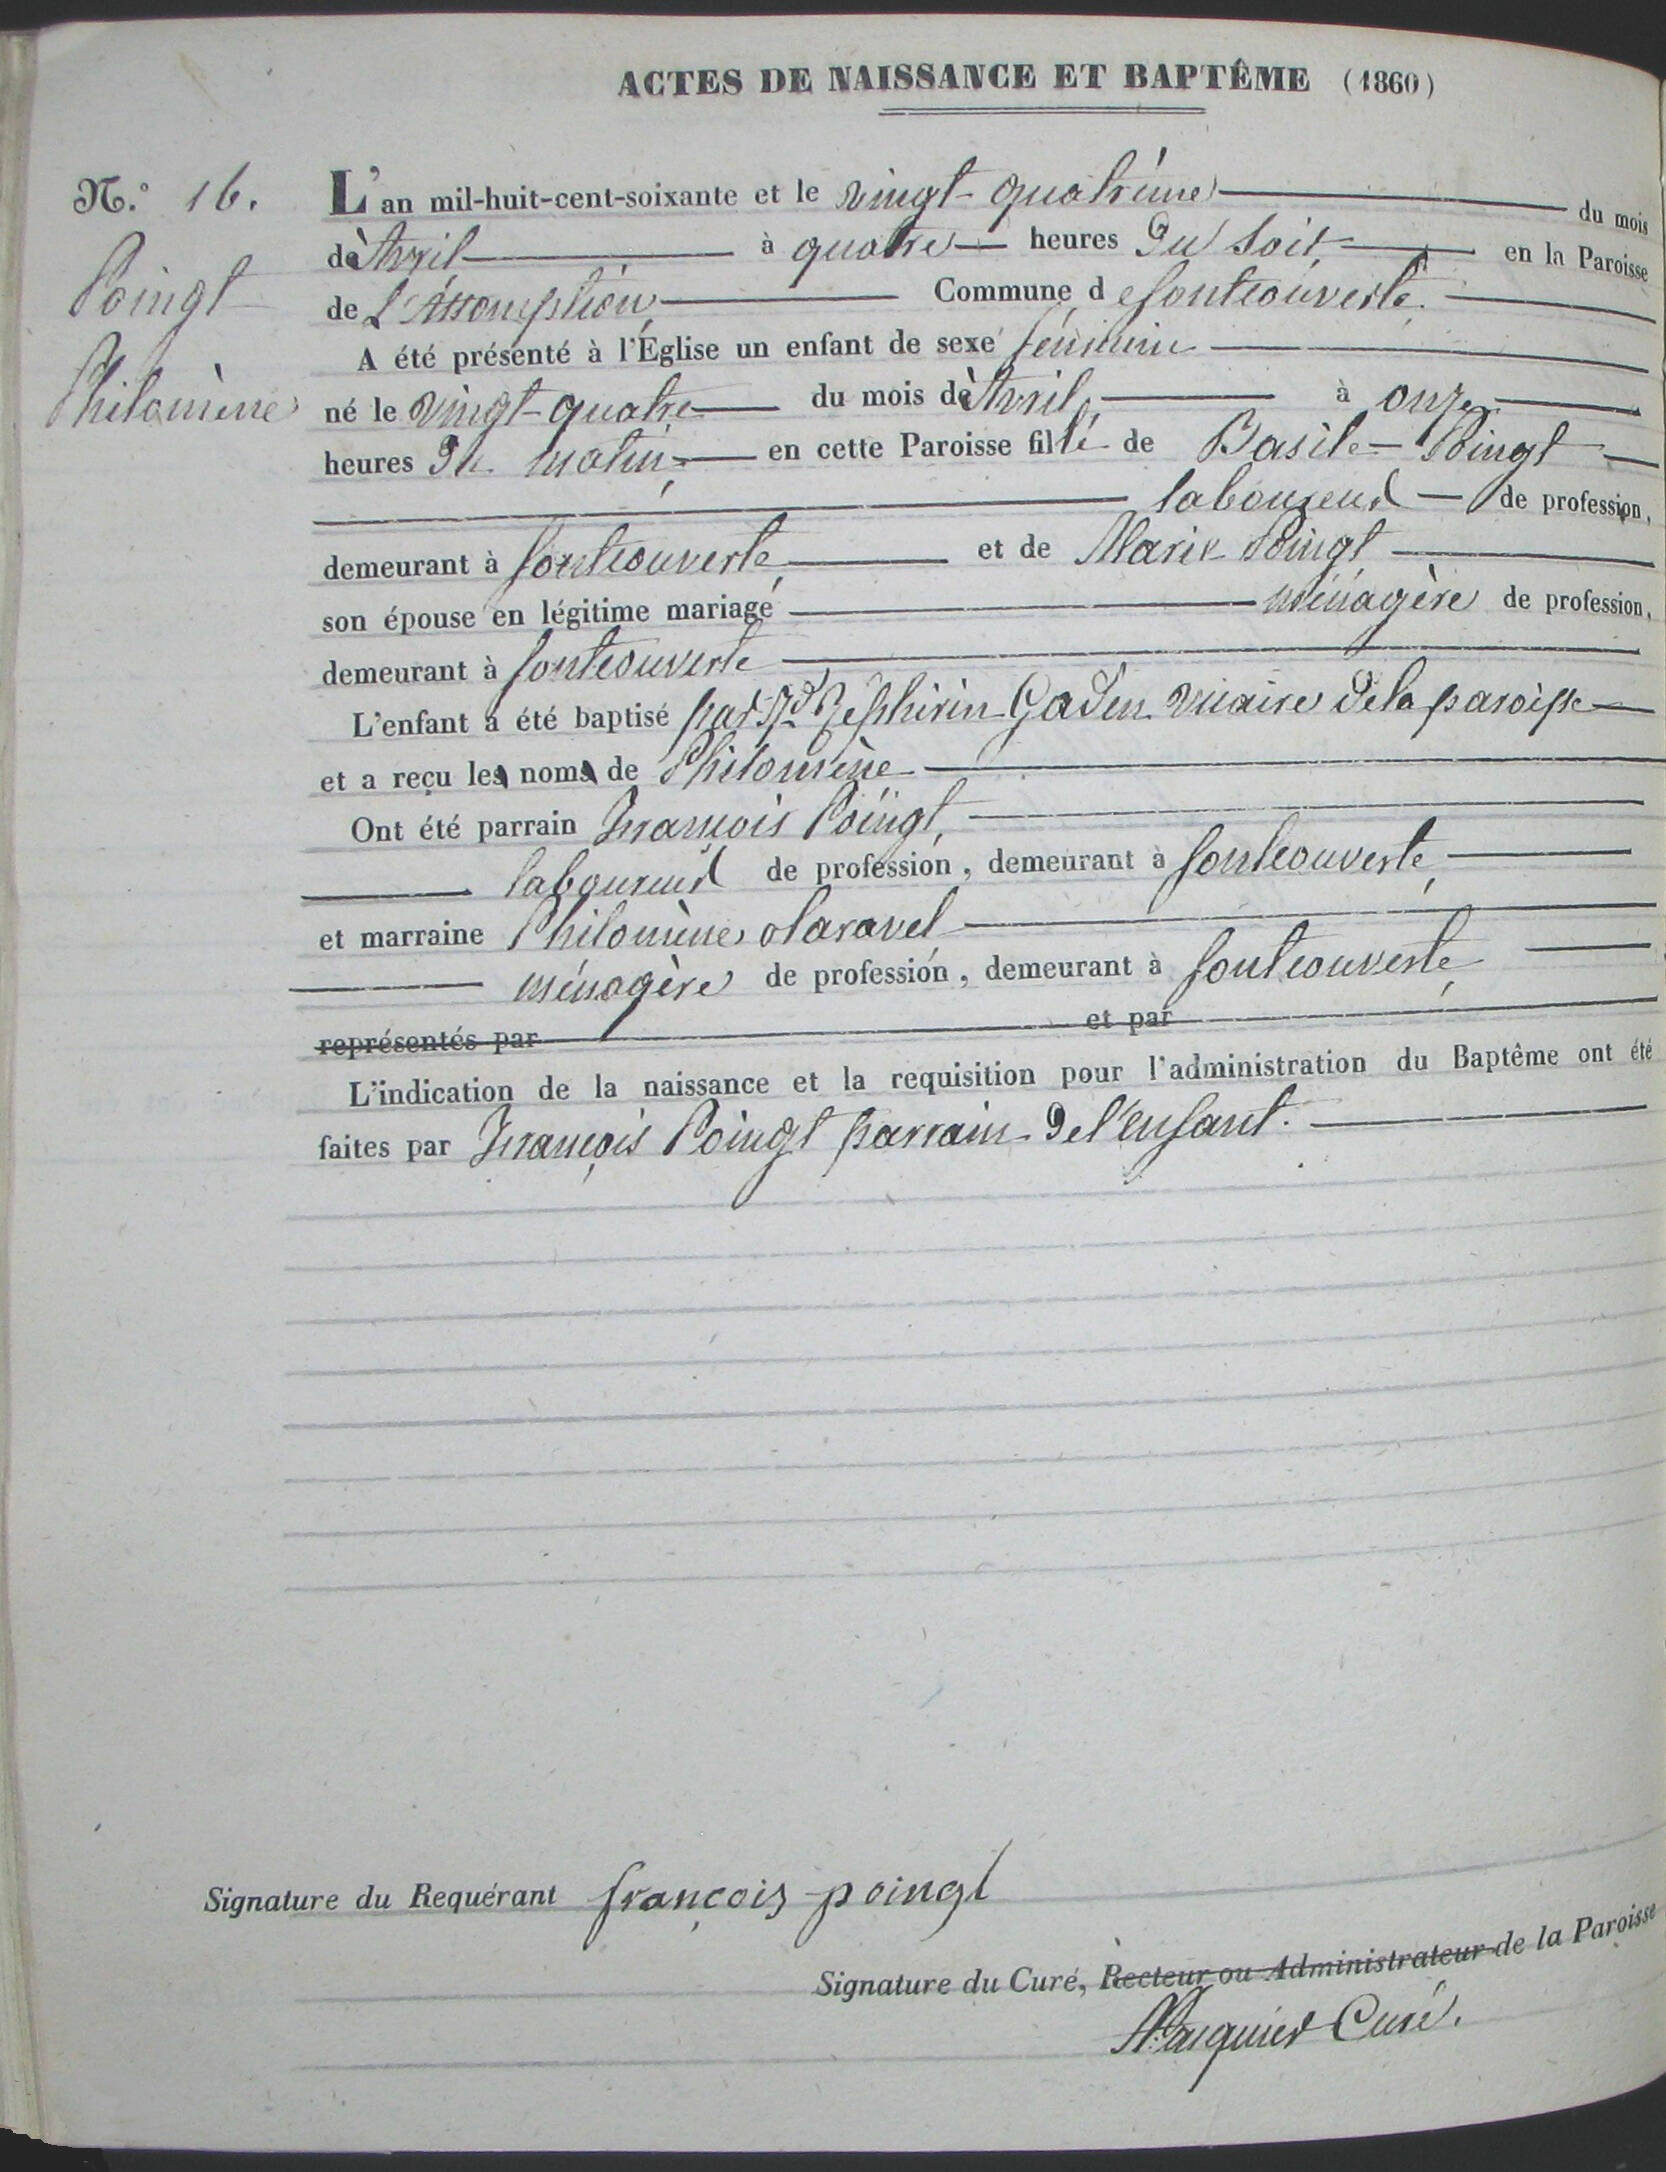 ACTES DE NAISSANCE ET BAPTÊME (1860)
N.° 16.
Poingt
Philomène
L'an mil-huit-cent-soixante et le vingt-quatrième du mois
d'Avril à quatre heures du soir, en la Paroisse
de L'Assomption, Commune de fontcouverte.
A été présenté à l'Église un enfant de sexe féminin
né le vingt-quatre du mois d'Avril, à onze
heures du matin, en cette Paroisse fille de Basile Poingt
laboureur de profession,
demeurant à fontcouverte, et de Marie Poingt
son épouse en légitime mariage ménagère de profession,
demeurant à fontcouverte
L'enfant a été baptisé par Rd Zéphirin Gaden vicaire de la paroisse
et a reçu les noms de Philomène
Ont été parrain François Poingt,
laboureur de profession, demeurant à fontcouverte,
et marraine Philomène olaravel
ménagère de profession, demeurant à fontcouverte,
représentés par et par
L'indication de la naissance et la requisition pour l'administration du Baptême ont été
faites par François Poingt parrain de l'enfant.
Signature du Requérant françois poingt
Signature du Curé, Recteur ou Administrateur de la Paroisse
Curé.